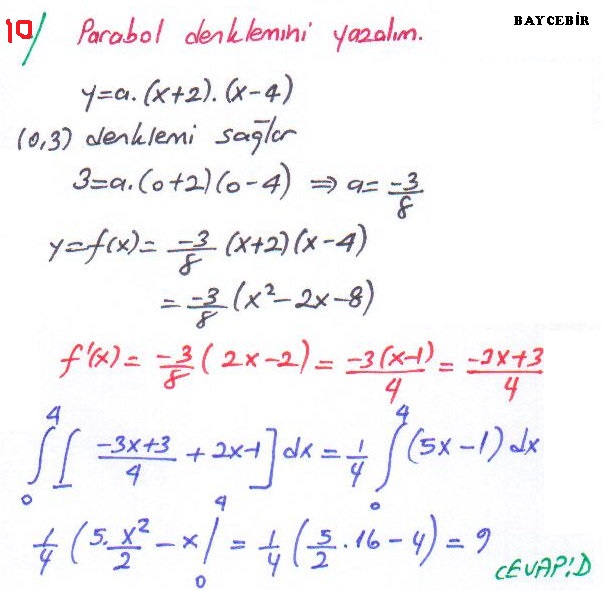 10/ Parabol denklemini yazalım.
BAYCEBİR
y=a.(x+2).(x-4)
(0,3) denklemi sağlar
3=a.(0+2)(0-4) ⇒ a= -3/8
y=f(x)= -3/8 (x+2)(x-4)
= -3/8 (x²-2x-8)
f'(x)= -3/8 (2x-2)= -3(x-1)/4 = -3x+3/4
∫₀⁴ [ -3x+3/4 + 2x-1 ] dx = 1/4 ∫₀⁴ (5x-1) dx
1/4 (5.x²/2 - x |₀⁴ = 1/4 (5/2 . 16 - 4) = 9
CEVAP:D